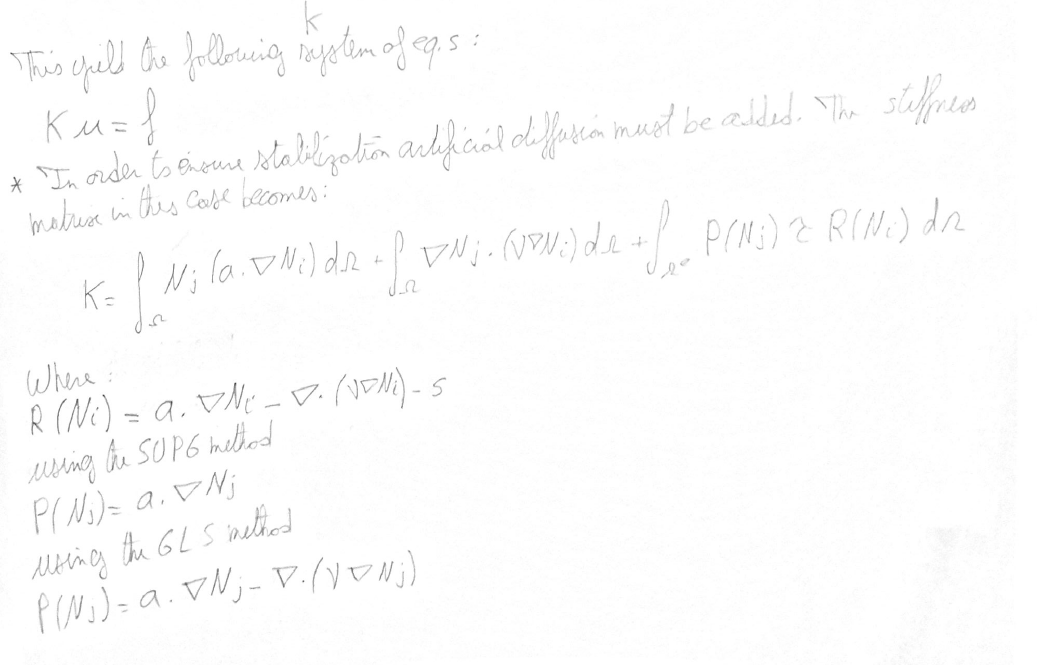 K
This yield the following system of eq.s :
K u = f
* In order to ensure stabilization artificial diffusion must be added. The stiffness
matrix in this case becomes:
K = ∫_Ω Nj (a . ∇Ni) dΩ + ∫_Ω ∇Nj . (ν∇Ni) dΩ + ∫_Ωe P(Nj) τ R(Ni) dΩ
Where :
R (Ni) = a . ∇Ni - ∇. (ν∇Ni) - s
using the SUPG method
P(Nj) = a . ∇Nj
using the GLS method
P(Nj) = a . ∇Nj - ∇. (ν∇Nj)